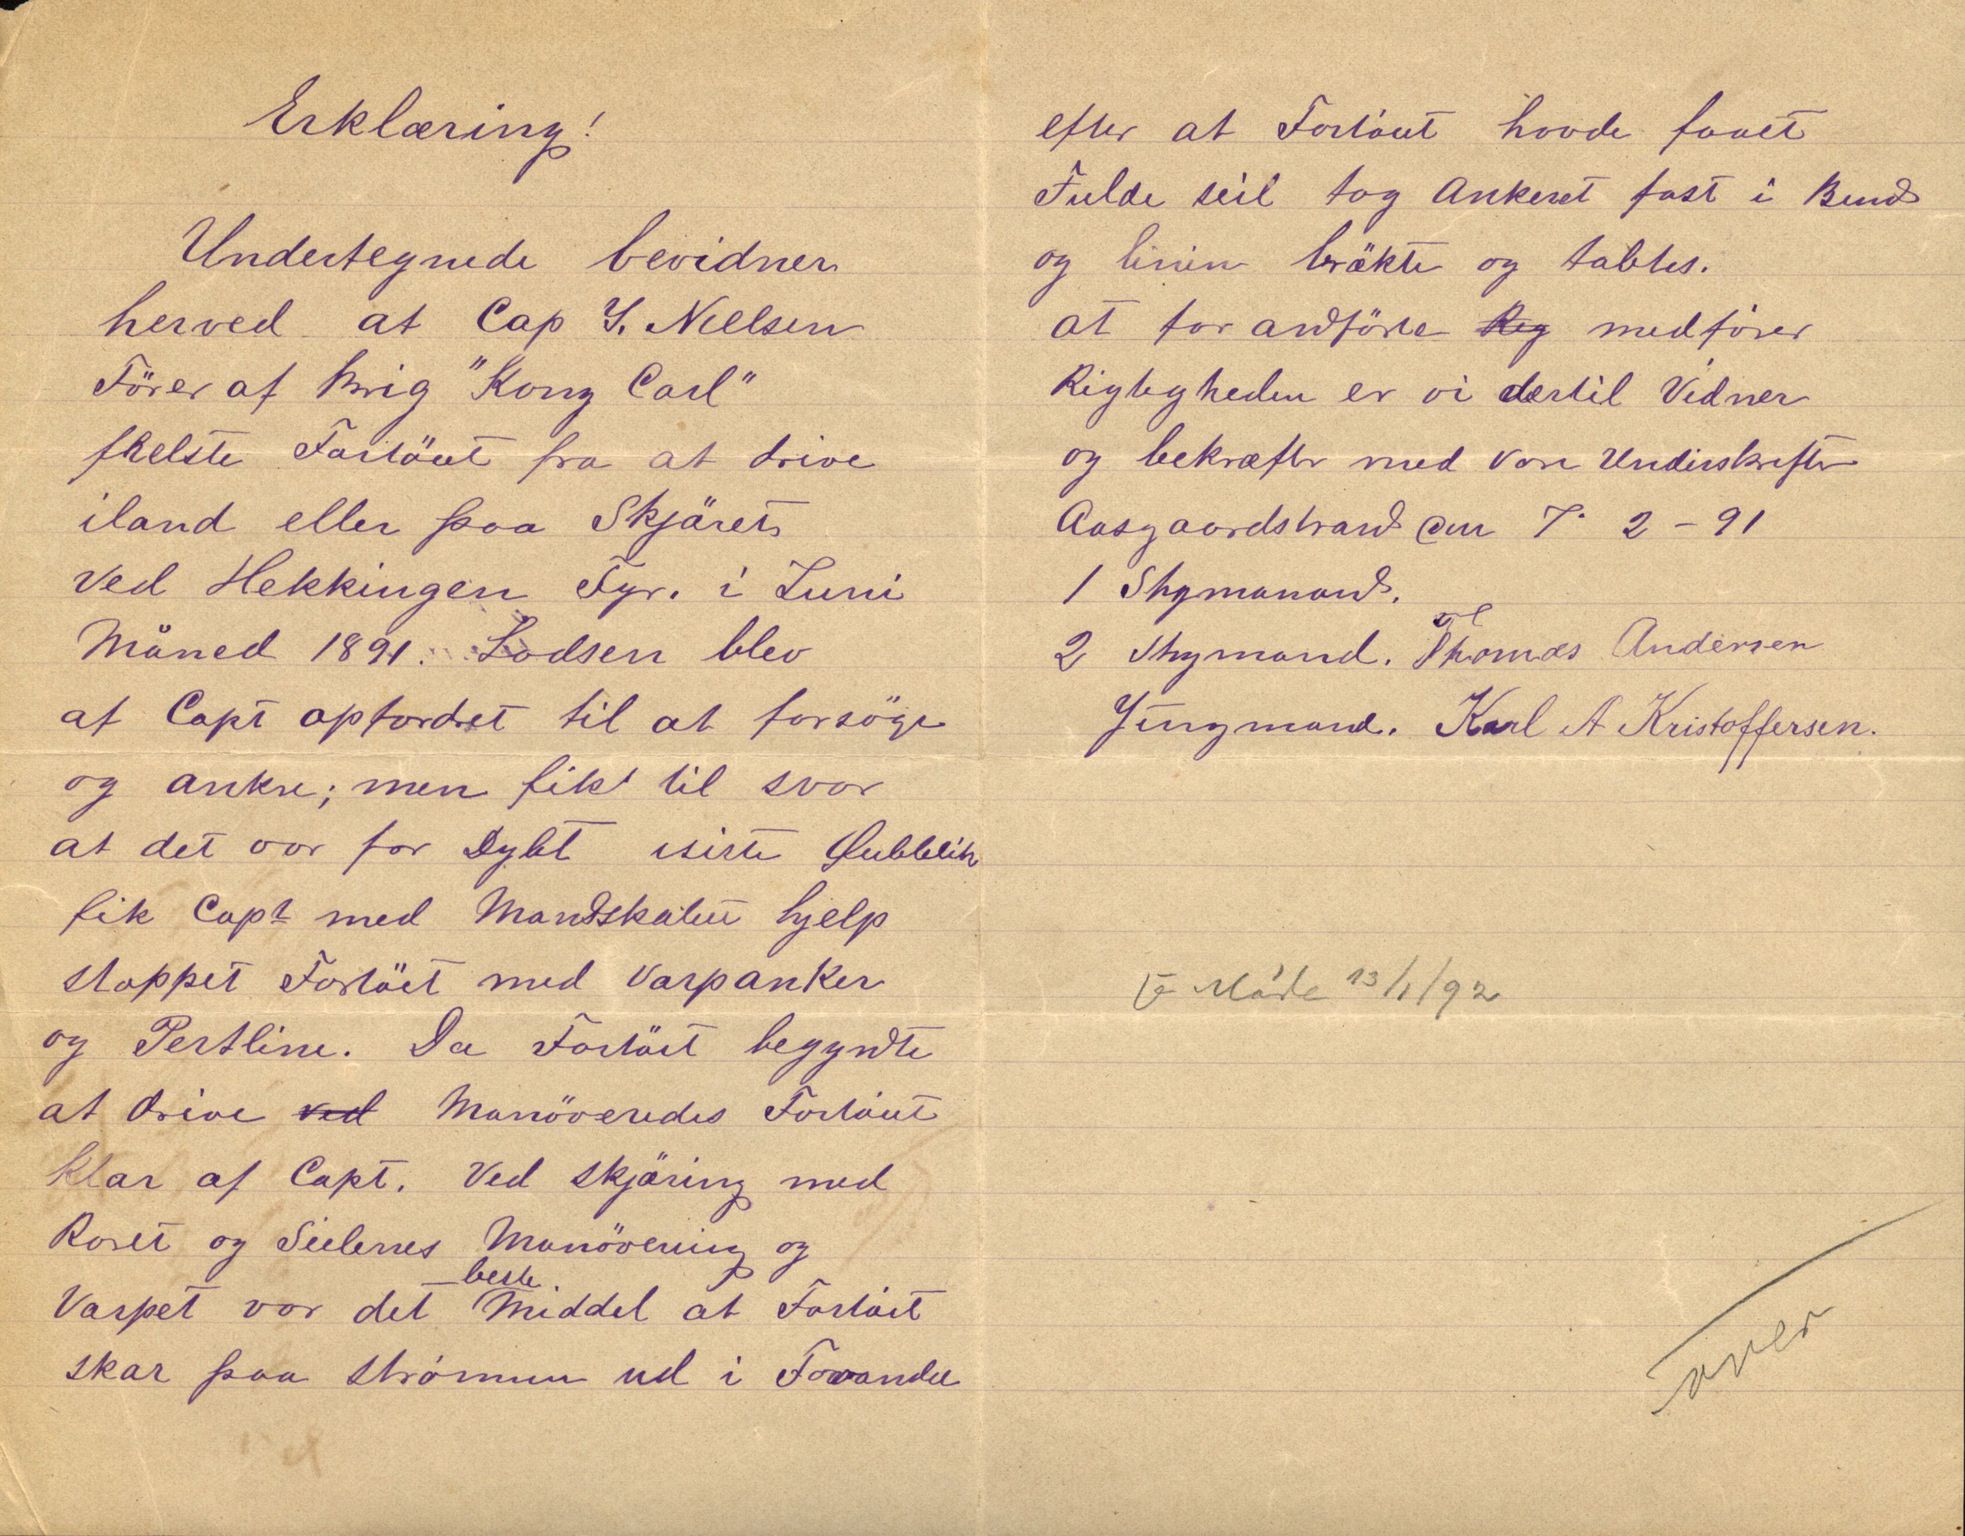 Erklæring!
Undertegnede bevidner
herved at Cap Y. Nielsen
Förer af brig "Kong Carl"
frelste Fortöiet fra at drive
iland eller paa Skjäret
ved Hekkingen Fyr. i Juni
Måned 1891. Lodsen blev
af Capt opfordret til at forsöge
og ankre; men fik til svar
at det var for Dybt isiste Øiebblik
fik Capt med Mandskabet hjelp
stoppet Fortöiet med Varpanker
og Pertline. Da Fortöiet begyndte
at drive ved Manöveredes Fortöiet
klar af Capt. Ved skjäring med
Roret og Seilenes Manövering og
Varpet var det beste Middel at Fortöiet
skar paa strömmen ud i Farvandet
efter at Fortöiet havde faaet
Fulde seil tog Ankeret fast i Bund
og linen bräkte og tabtes.
at for anförte Rig medförer
Rigtigheden er vi dertil Vidner
og bekræfter med vore Underskrefter
Aasgaardstrand den 7. 2 - 91
1 Stymanand.
2 Stymand. Thomas Andersen
Jungmand. Karl A Kristoffersen.
Möde 13/1/92
over